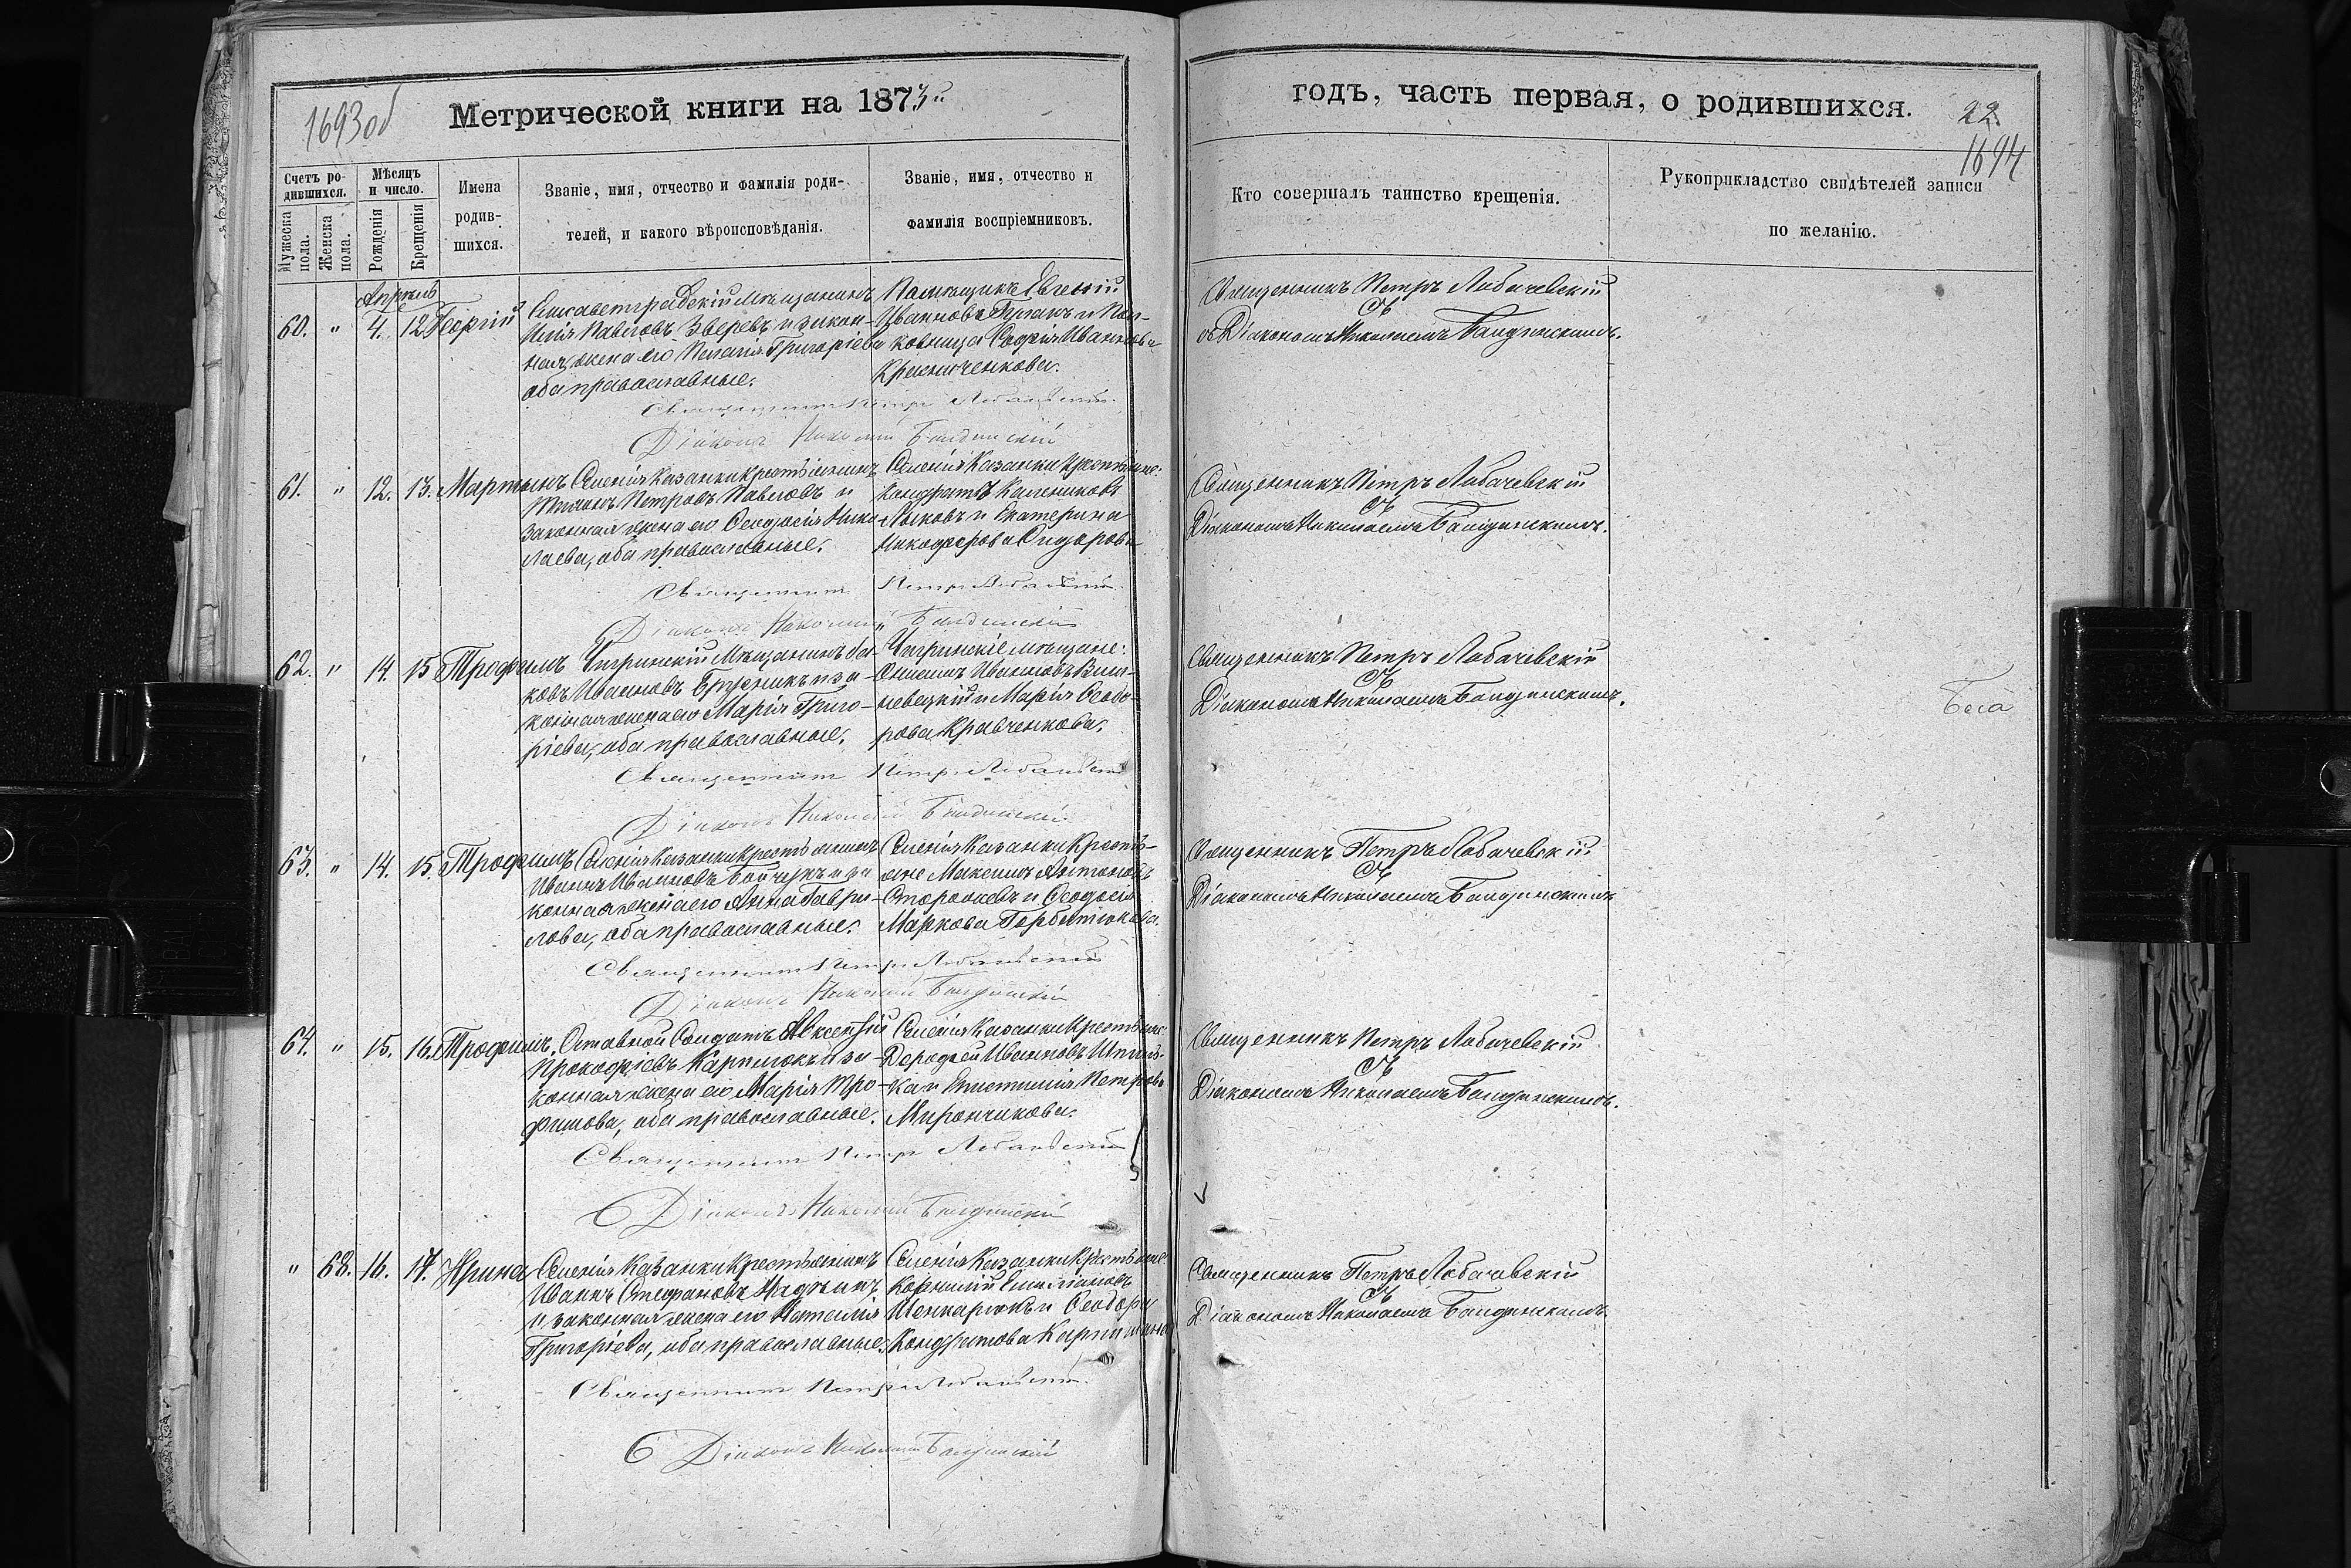 1693об
Метрической книги на 1873й
годъ, часть первая, о родившихся.
22
1694
Счетъ родившихся.
Мужеска пола.
Женска пола.
Мѣсяцъ и число.
Рожденія
Крещенія
Имена родившихся.
Званіе, имя, отчество и фамилія роди-
телей, и какого вѣроисповѣданія.
Званіе, имя, отчество и
фамилія воспріемниковъ.
Кто совершалъ таинство крещенія.
Рукоприкладство свидѣтелей записи
по желанію.
Апрѣль
60. " 4. 12 Георгій
Елисаветградскій мѣщанинъ
Илія Павловъ Зверевъ и закон-
ная жена его Пелагія Григоріева
оба православные.
Помѣщикъ Евгеній
Ивановъ и Пол-
ковница Софія Иванова
Красниченкова.
Священникъ Петръ Лобачевскій
съ
Діакономъ Николаемъ Балдинскимъ.
Священникъ Петръ Лобачевскій
Діаконъ Николай Балдинскій
61. " 12. 13. Мартинъ
Селенія Казанки крестьянинъ
Петровъ Павловъ и
законная жена его Феодосія Нико-
лаева, оба православные.
Селенія Казанки крестьяне:
Кондратъ Калениковъ
Лысковъ и Екатерина
Никифорова Сидорова
Священникъ Петръ Лобачевскій
съ
Діакономъ Николаемъ Балдинскимъ.
Священникъ Петръ Лобачевскій
Діаконъ Николай Балдинскій
62. " 14. 15 Трофимъ
Чигринскій мѣщанинъ Яа-
ковъ Ивановъ и за-
конная жена его Марія Григо-
ріева, оба православные.
Чигринскіе мѣщане:
Онисимъ Ивановъ Виш-
невецкій и Марія Феодо-
рова Кравченкова.
Священникъ Петръ Лобачевскій
съ
Діакономъ Николаемъ Балдинскимъ.
Священникъ Петръ Лобачевскій
Діаконъ Николай Балдинскій
63. " 14. 15. Трофимъ
Селенія Казанки крестьянинъ
Иванъ Ивановъ Бойчукъ и за
конная жена его Анна Гаври-
лова, оба православные.
Селенія Казанки Крестья-
не Максимъ Антоновъ
Сторожевъ и Феодосія
Маркова Горбатюкова.
Священникъ Петръ Лобачевскій
съ
Діакономъ Николаемъ Балдинскимъ
Священникъ Петръ Лобачевскій
Діаконъ Николай Балдинскій
64. " 15. 16. Трофимъ.
Отставной Солдатъ Авксентій
Прокофіевъ Карпилокъ и за-
конная жена его Марія Тро-
фимова, оба православные.
Селенія Казанки Крестьяне:
Дорофей Ивановъ
ка и Петрова
Мирончикова.
Священникъ Петръ Лобачевскій
съ
Діакономъ Николаемъ Балдинскимъ.
Священникъ Петръ Лобачевскій
Діаконъ Николай Балдинскій
" 68. 16. 17. Ирина
Селенія Казанки крестьянинъ
Иванъ Стефановъ
и законная жена его Наталія
Григоріева, оба православные.
Селенія Казанки крестьяне
Корнилій Емиліановъ
Шенкарюкъ и Феодора
Кондратова
Священникъ Петръ Лобачевскій
съ
Діакономъ Николаемъ Балдинскимъ.
Священникъ Петръ Лобачевскій
Діаконъ Николай Балдинскій